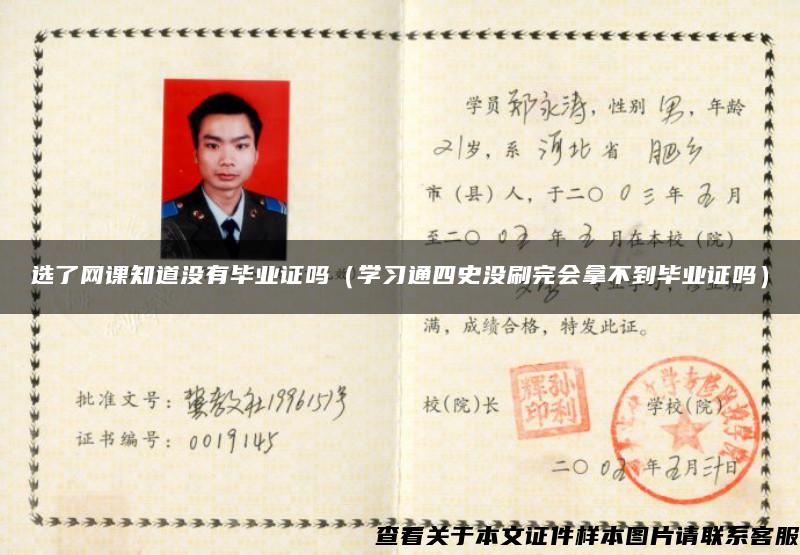 学员郑永涛，性别男，年龄
21岁，系河北省肥乡
市（县）人，于二〇〇三年五月
至二〇〇五年五月在本校（院）
选了网课知道没有毕业证吗（学习通四史没刷完会拿不到毕业证吗）
满，成绩合格，特发此证。
批准文号：冀教文社1996157号
证书编号：0019145
校（院）长
孙利辉印
学校（院）
二〇〇五年五月三十日
查看关于本文证件样本图片请联系客服